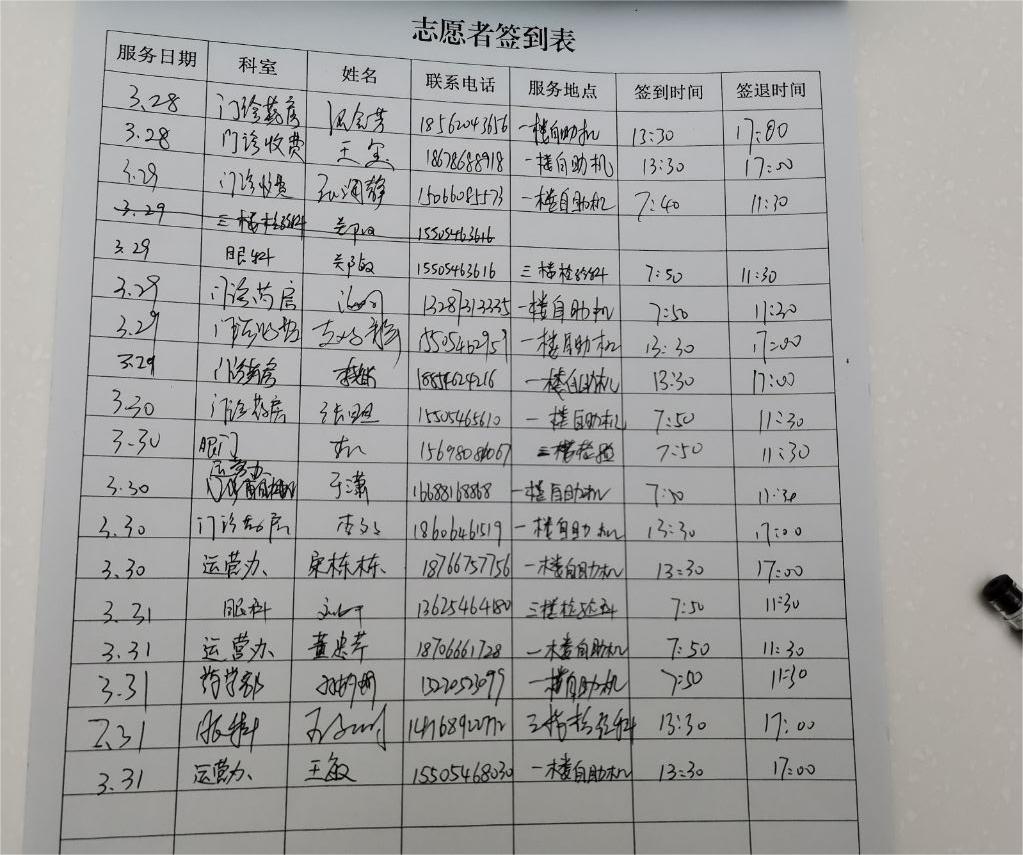 志愿者签到表
服务日期 科室 姓名 联系电话 服务地点 签到时间 签退时间
3.28 门诊药房 18562043656 一楼自助机 13:30 17:00
3.28 门诊收费 王 18678688918 一楼自助机 13:30 17:00
3.29 门诊收费 静 15066085573 一楼自助机 7:40 11:30
3.29 三楼检验科 郑敏 15505463616
3.29 眼科 郑敏 15505463616 三楼检验科 7:50 11:30
3.29 门诊药房 13287313335 一楼自助机 7:50 11:30
3.29 门诊收费 15505462959 一楼自助机 13:30 17:00
3.29 门诊药房 18854624216 一楼自助机 13:30 17:00
3.30 门诊药房 张 15505465610 一楼自助机 7:50 11:30
3.30 眼门 15698084067 三楼检验 7:50 11:30
3.30 运营办 于潇 16688168868 一楼自助机 7:30 11:30
3.30 门诊药房 李 18606461519 一楼自助机 13:30 17:00
3.30 运营办、 宋栋栋、 18766757756 一楼自助机 13:30 17:00
3.31 眼科 13625464180 三楼检验科 7:50 11:30
3.31 运营办、 董忠芹 18706661728 一楼自助机 7:50 11:30
3.31 药学部 15220523099 一楼自助机 7:50 11:30
3.31 眼科 三楼检验科 13:30 17:00
3.31 运营办、 王敏 15505468030 一楼自助机 13:30 17:00